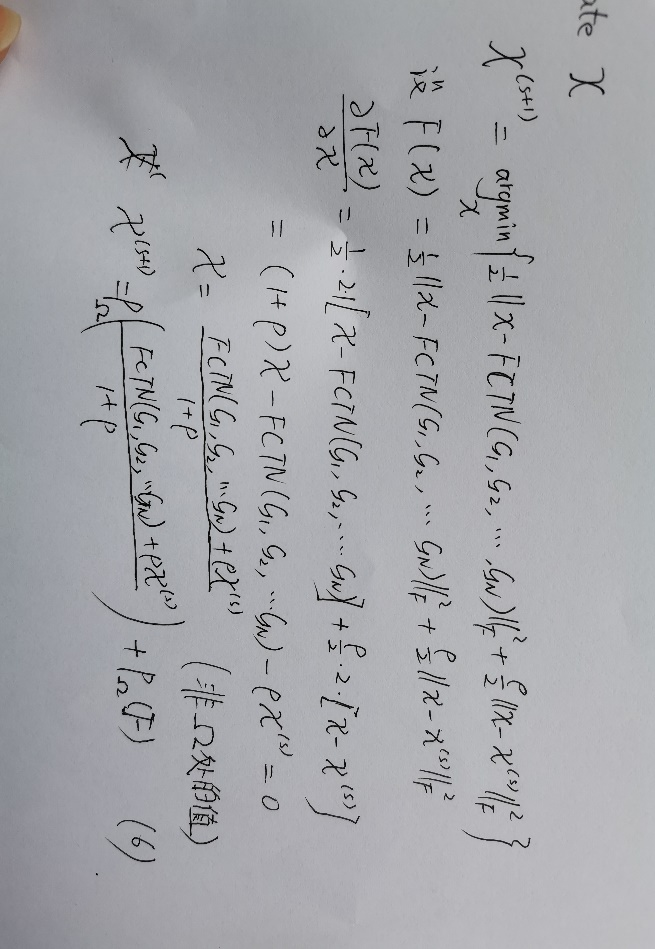 ate X
X^(s+1) = argmin_X { 1/2 ||X - FCTN(G_1, G_2, ..., G_N)||_F^2 + ρ/2 ||X - X^(s)||_F^2 }
设 F(X) = 1/2 ||X - FCTN(G_1, G_2, ... G_N)||_F^2 + ρ/2 ||X - X^(s)||_F^2
∂F(X)/∂X = 1/2 · 2 · [X - FCTN(G_1, G_2, ... G_N)] + ρ/2 · 2 · [X - X^(s)]
= (1+ρ)X - FCTN(G_1, G_2, ... G_N) - ρX^(s) = 0
X = (FCTN(G_1, G_2, ... G_N) + ρX^(s)) / (1+ρ) (非Ω处的值)
X^(s+1) = P_Ω^c( (FCTN(G_1, G_2, ... G_N) + ρX^(s)) / (1+ρ) ) + P_Ω(F) (6)